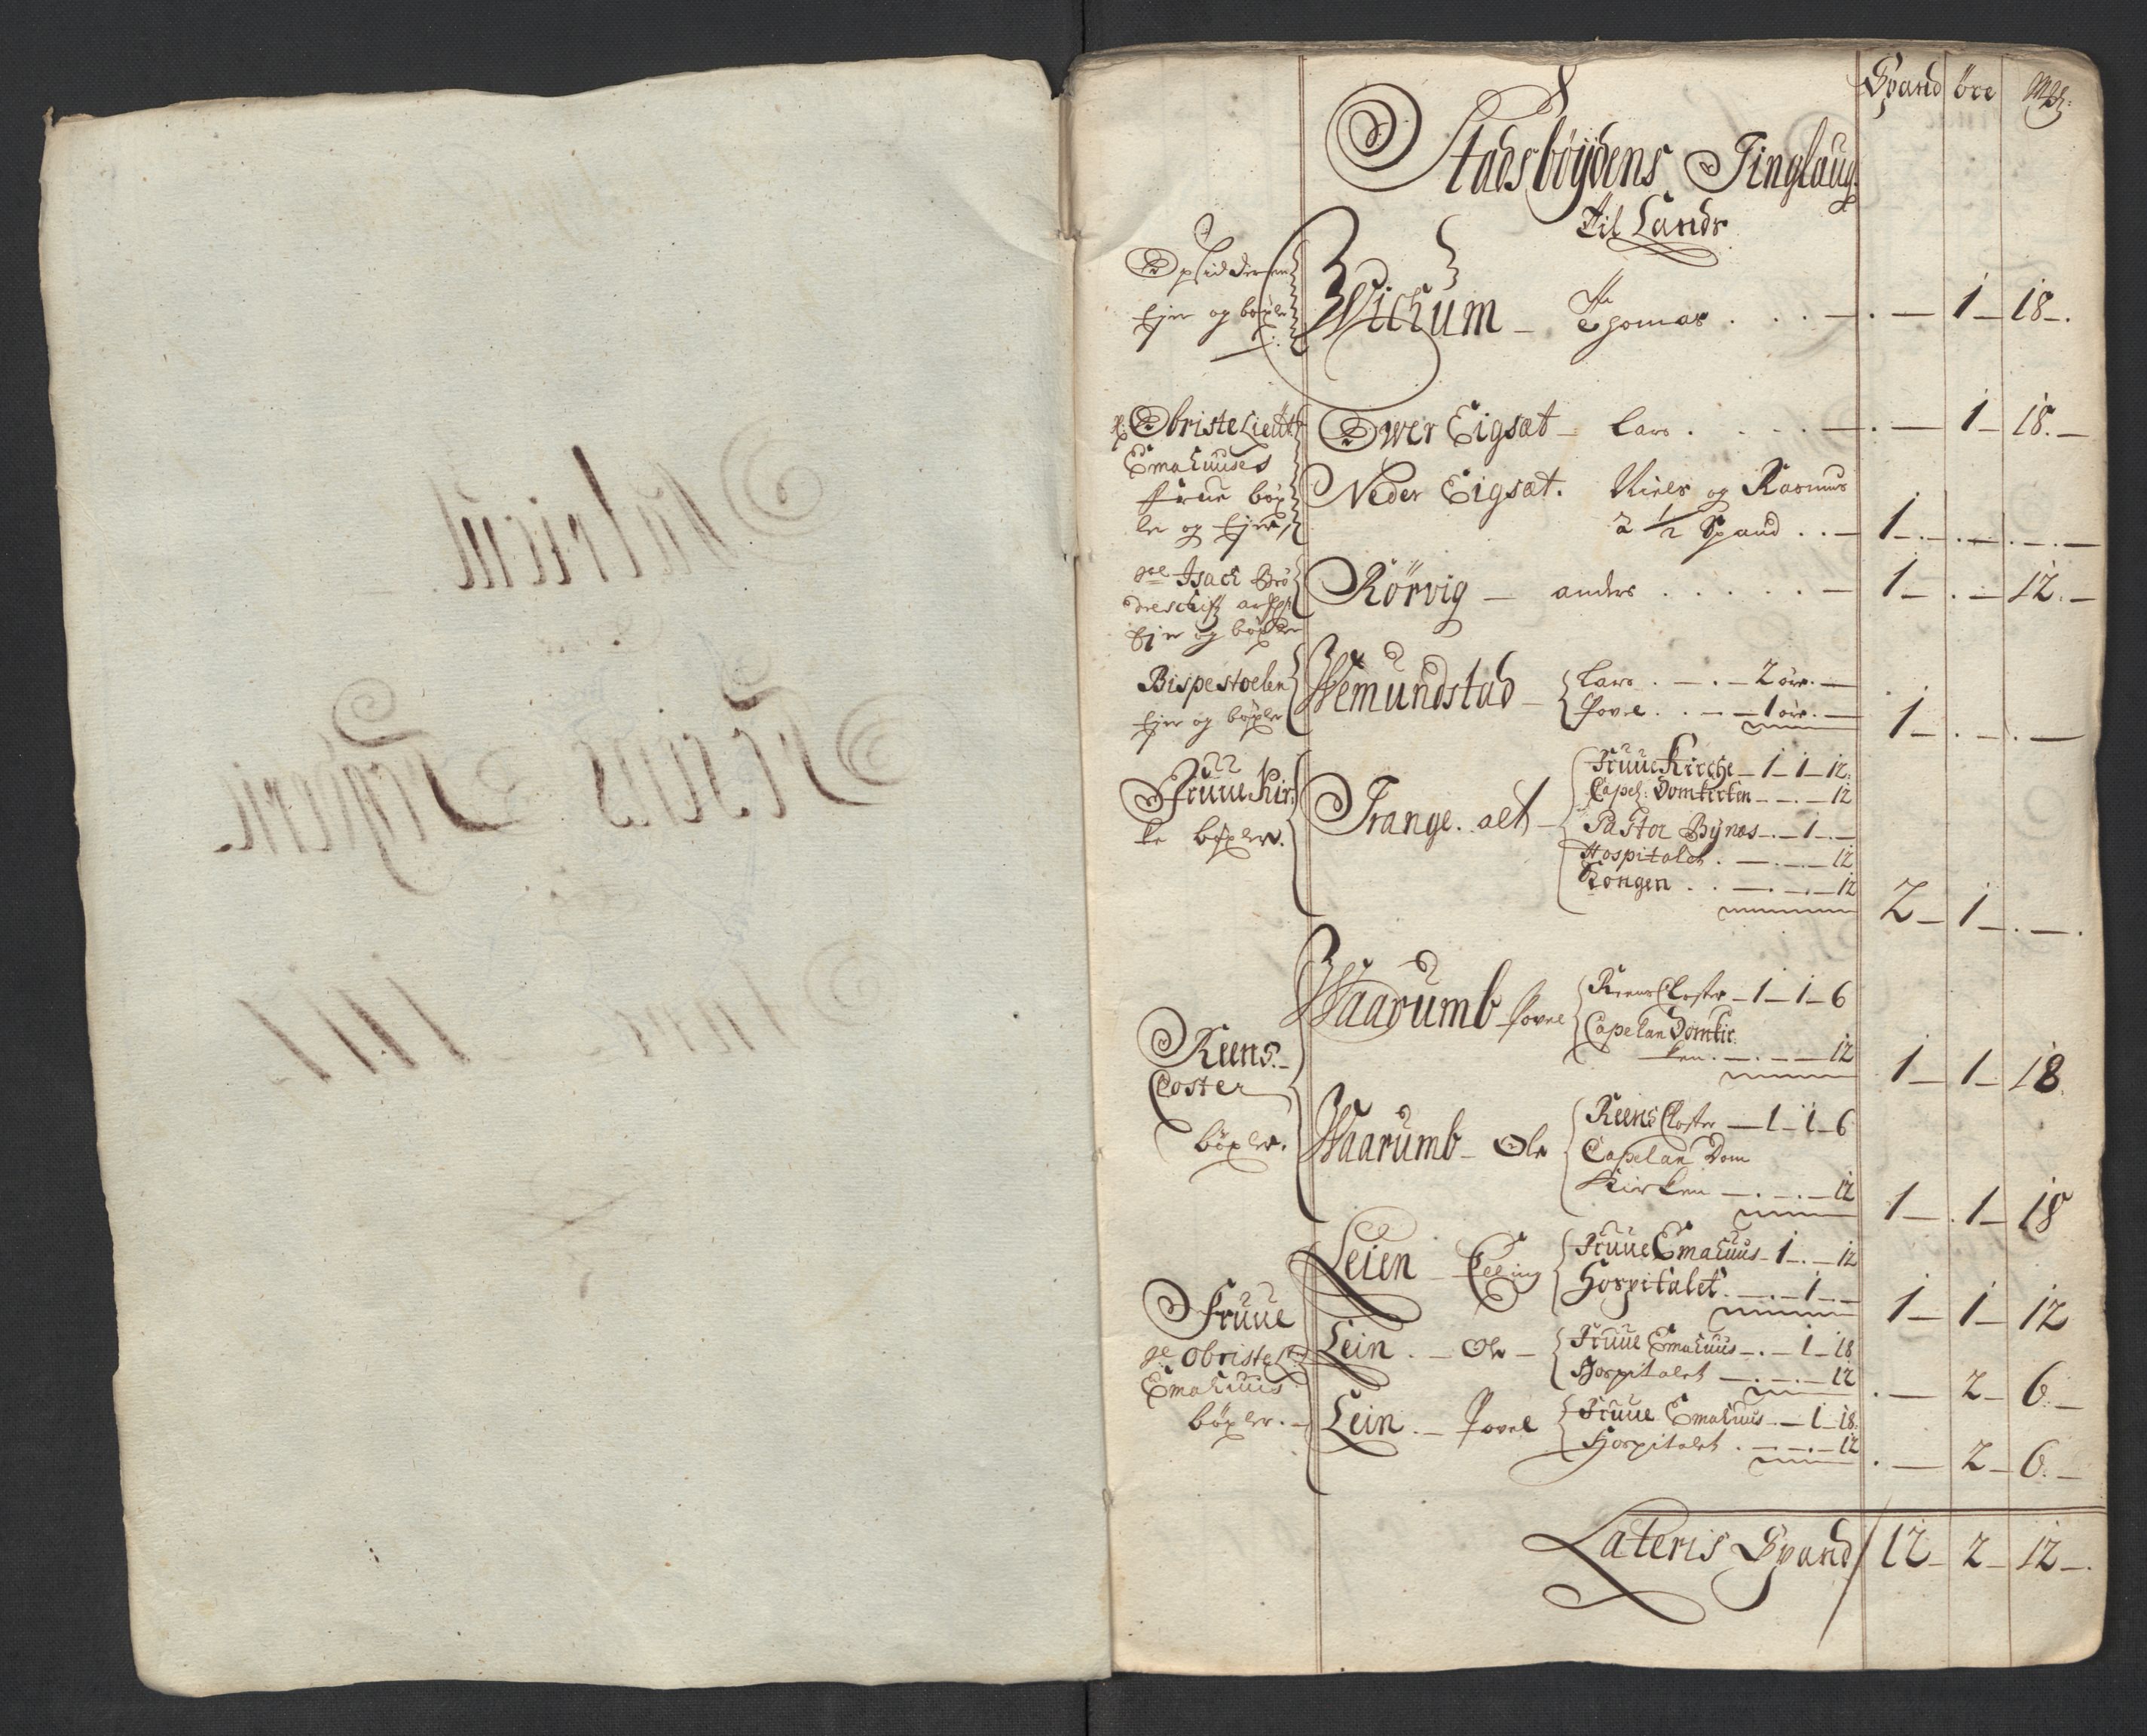 Spand öre Mk:
Stadsbøydens Tinglaug
Til Lands
Opsidderen
Ejer og böxler
Wichum - Thomas . . . - . - 1 - 18 - .
Obriste Lieut:
Emahuuses
Frue böx
le og Ejer
Ower Eigsæt - Lars . . . . - . - 1 - 18. -
Neder Eigsæt. Niels og Rasmus
a ½ Spand . . - 1 - . - . - . - . -
Isach Brö
Ejer og böxler
Rörvig - anders . . . . . - 1 - . - 12. -
Bispestoelen
Ejer og böxler
Wemundstad - Lars . - . - 2 öre. -
Povel . . - - 1 öre. - 1 - . - . -
Fruue Kir
ke böxler.
Trange. alt - Fruue Kirche - 1 - 1 - 12.
Capel: Domkirken - - . - 12
Pastor Bynes - . - 1 - . -
Hospitalet . - . - . - 12
Kongen . . - . - . - 12
2 - 1 - . - .
Reens. -
Closter
böxler.
Waarumb - Povel Reens Closter - 1 - 1 - 6
Capelan Domkir
ken . - . - - 12 1 - 1 - 18.
Waarumb - Ole Reens Closter - 1 - 1 - 6
Capelan Dom
Kirken - . - . - 12 1 - . 1 - 18
Fruue
Obriste Lt:
Emahuus
böxler. -
Leien - Elling Fruue Emahuus - 1 - . - 12
Hospitalet . - . - 1 - - 1 - 1 - 12
Lein . - Ole - Fruue Emahuus - . - 1 - 18
Hospitalet - . - . - 12 . - 2 - 6. -
Lein. - Povel Fruue Emahuus . - 1 - 18.
Hospitalet . - - . - 12 . - 2 - 6. -
Lateris Spand / 12 - 2 - 12 - .